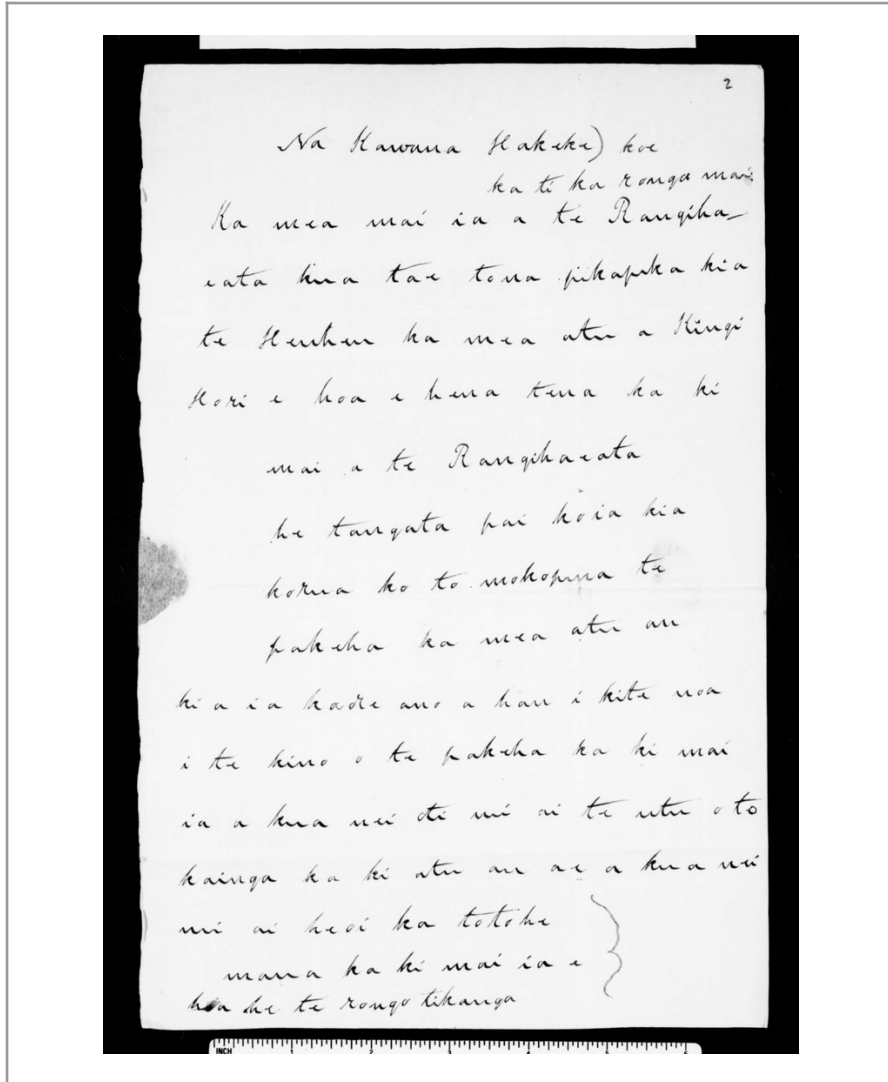 2
Na Kawana Hakeke) koe
ka ti ka ronga mai.
Ka mea mai ia a te Rangiha-
eata kua tae tona pikapika kia
te Heuheu ka mea atu a Kingi
Hori e hoa e hena tena ka ki
mai a te Rangihaeata
he tangata pai koia kia
korua ko to mokopuna te
pakeha ka mea atu au
ki a ia kaore ano a hau i kite noa
i te kino o te pakeha ka ki mai
ia a kua nei oti mi ai te utu o to
kainga ka ki atu au ae a kua nei
mi ai heoi ka totohe
mana ka ki mai ia e
hoa he te rongo tikanga
INCH 1 2 3 4 5 6